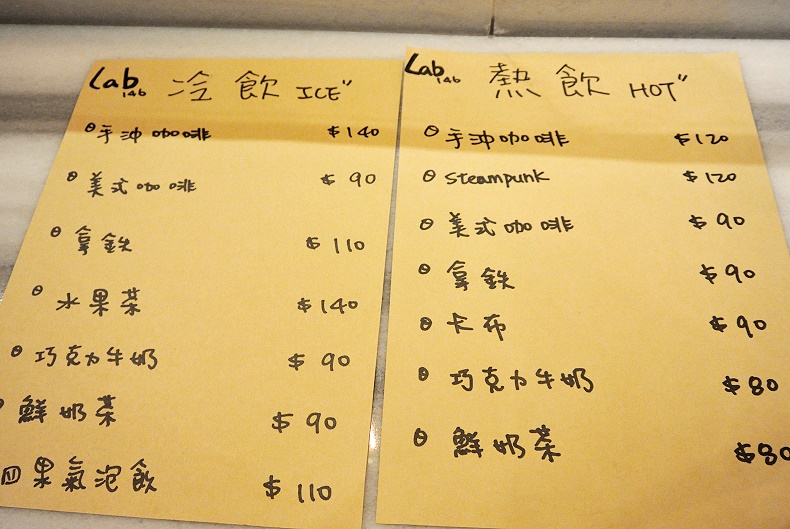 Lab146 冷飲 ICE"
手沖咖啡 $140
美式咖啡 $90
拿鉄 $110
水果茶 $140
巧克力牛奶 $90
鮮奶茶 $90
果氣泡飲 $110
Lab146 熱飲 HOT"
手沖咖啡 $120
Steampunk $120
美式咖啡 $90
拿鉄 $90
卡布 $90
巧克力牛奶 $80
鮮奶茶 $80